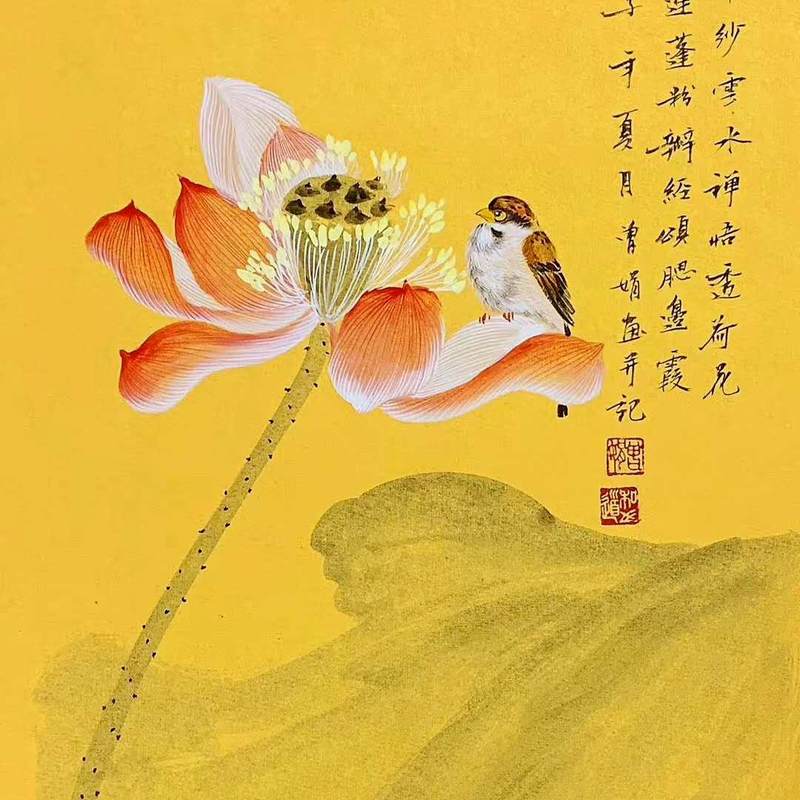 紗雲水禅悟透荷花
蓮蓬粉瓣經頌腮邊霞
子年夏月曾娟畫并記